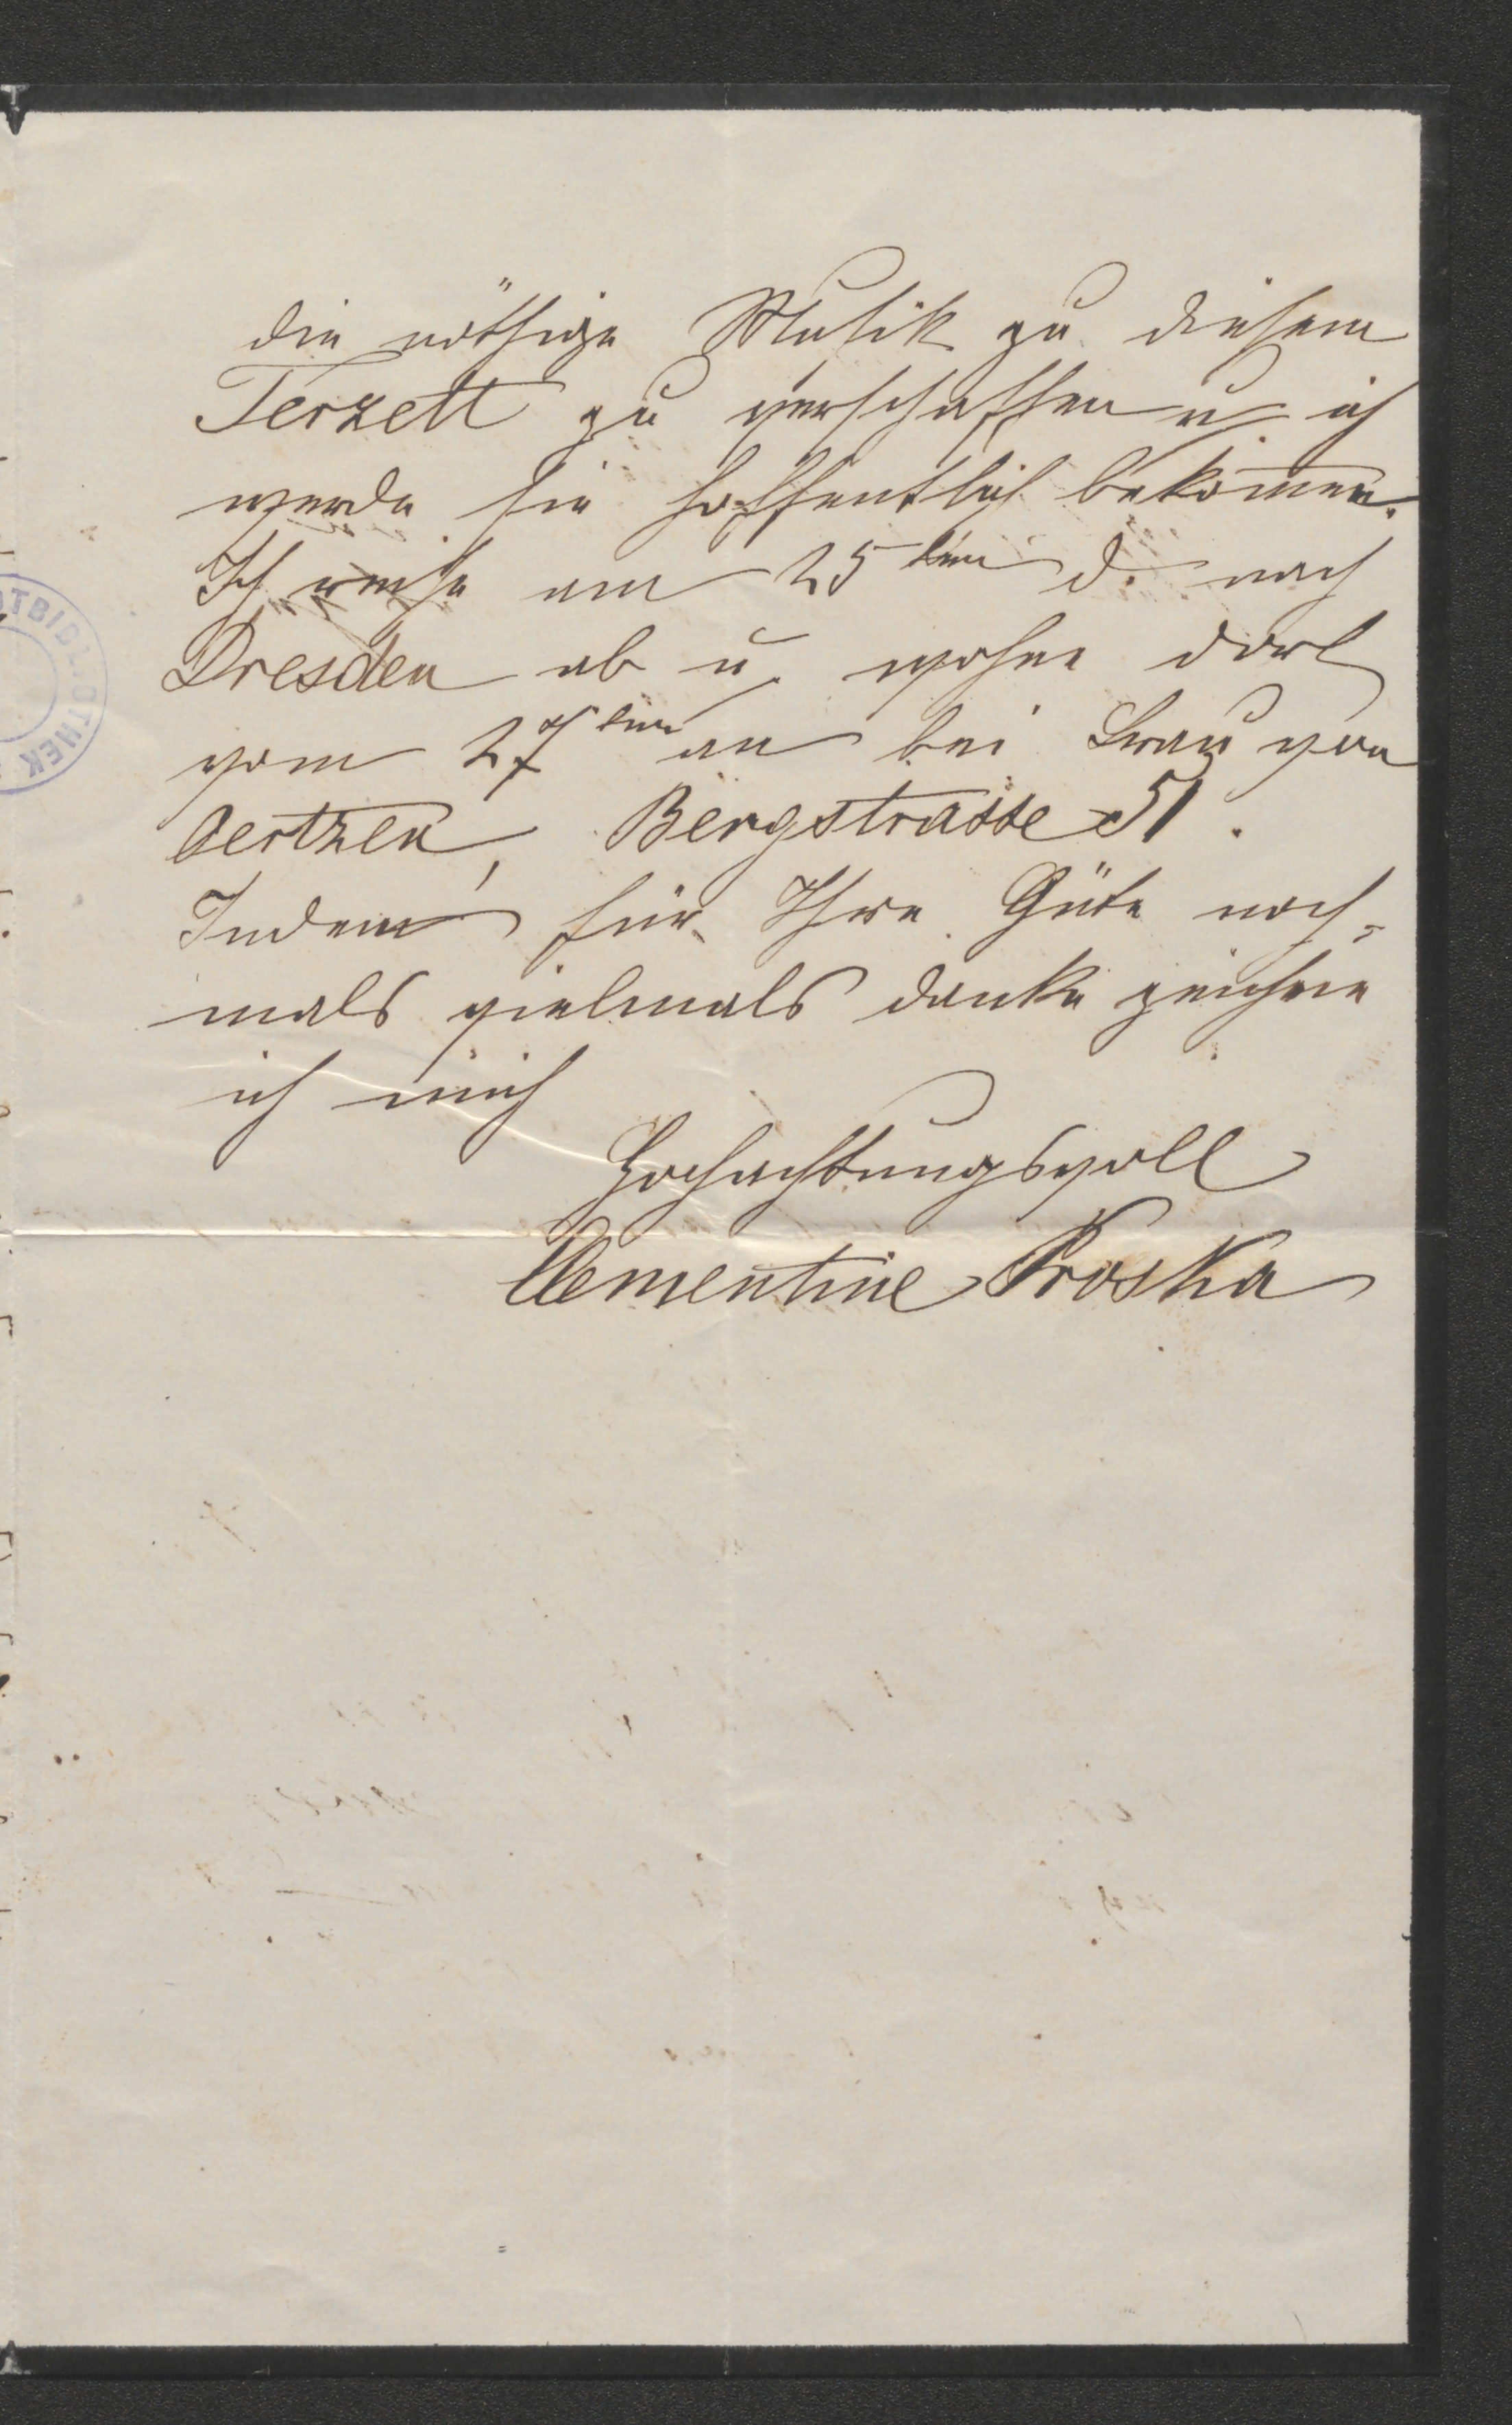 die nöthige Musik zu diesem
Terzett zu verschaffen u. ich
werde sie hoffentlich bekom̅en.
Ich reise am 25ten d. nach
Dresden ab u. wohne dort
vom 27ten an bei Frau von
Oertzen, Bergstrasse 51.
Indem für Ihre Güte noch-
mals vielmals danke zeichne
ich mich
Hochachtungsvoll
Clementine Proska